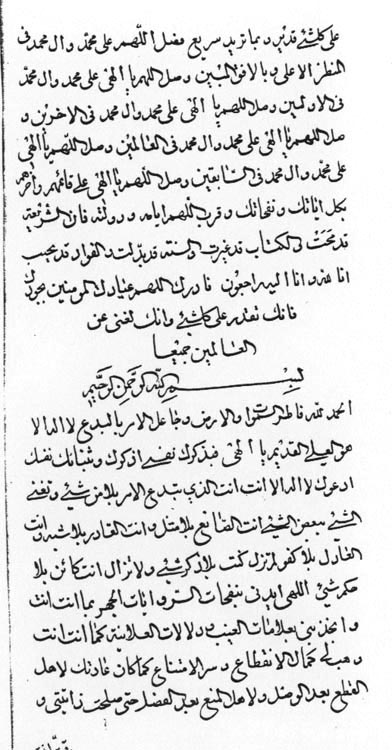 على كلشئ قدير و بما تريد سريع فصل اللهم على محمد وال محمد فى
المنظر الاعلى و بالافق المبين وصل اللهم يا الهى على محمد وال محمد
فى الاولين وصل اللهم يا الهى على محمد وال محمد فى الاخرين و
صل اللهم يا الهى على محمد وال محمد فى العالمين وصل اللهم يا الهى
على محمد وال محمد فى السابقين وصل اللهم يا الهى على قائمهم
بكل اياتك و نفحاتك و قرب اللهم ايامه و دولته فان الشريعة
قد محت و الكتاب قد غيرت و السنة قد بدلت و الفواد قد
انا لله و انا اليه راجعون فادرك اللهم عبادك المومنين بجودك
فانك تقدر على كلشئ وانك لغنى عن
العالمين جميعا
بسم الله الرحمن الرحيم
الحمد لله فاطر السموات والارض وجاعل الامر بالبدع لا اله الا
هو العلى القديم يا الهى فبذكرك نفسى اذكرك و بثنائك نفسك
ادعوك لا اله الا انت انت الذى تبدع الامر بلا من شئ و تغنى
الشئ ببعض الشئ انت الصانع بلا مثل و انت القادر بلا شبه و انت
العادل بلا كفو لم تزل كنت بلا ذكر شئ و لا تزال انت كائن بلا
حكم شئ اللهم ايدنى بنفحات السر و ايات الجهر بما انت انت
و بعلامات الغيب و دلالات العلانية كما انت انت
وهب لى كمال الانقطاع و سر الامتناع كما كان عادتك لاهل
القطع بعد الوصل و لاهل المنع بعد الفضل حتى صلحت ذاتيتى و